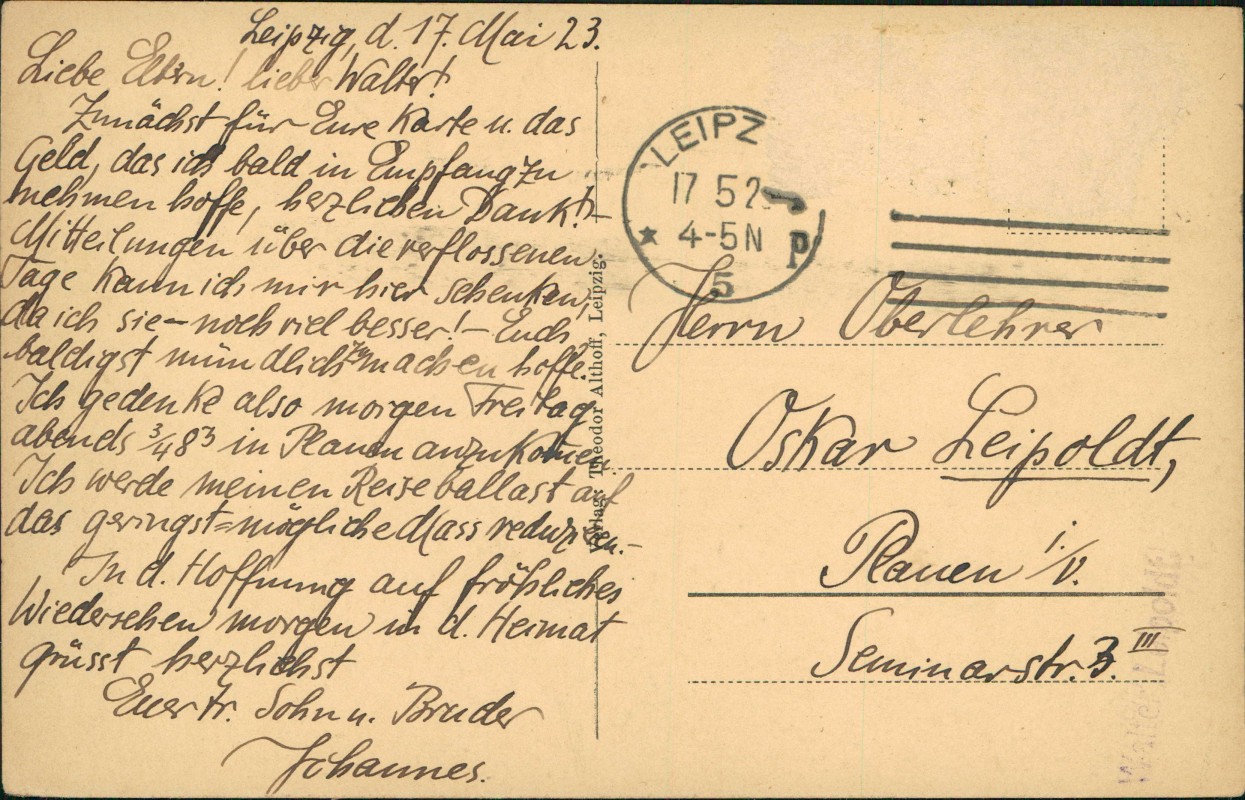 Leipzig, d. 17. Mai 23.
Liebe Eltern! lieber Walter!
Zunächst für Eure Karte u. das
Geld, das ich bald in Empfang zu
nehmen hoffe, herzlichen Dank! –
Mitteilungen über die verflossenen
Tage kann ich mir hier schenken,
da ich sie – noch viel besser! – Euch
baldigst mündlich zu machen hoffe.
Ich gedenke also morgen Freitag
abends 3/48 in Plauen anzukomen.
Ich werde meinen Reiseballast auf
das geringst=mögliche Mass reduzieren. –
In d. Hoffnung auf fröhliches
Wiedersehen morgen in d. Heimat
grüsst herzlichst
Euer tr. Sohn u. Bruder
Johannes.
Verlag: Theodor Althoff, Leipzig.
LEIPZ
17 5 2
4-5N
* 5 p
Herrn Oberlehrer
Oskar Leipoldt,
Plauen i./V.
Seminarstr. 3. III
Walter Leipoldt